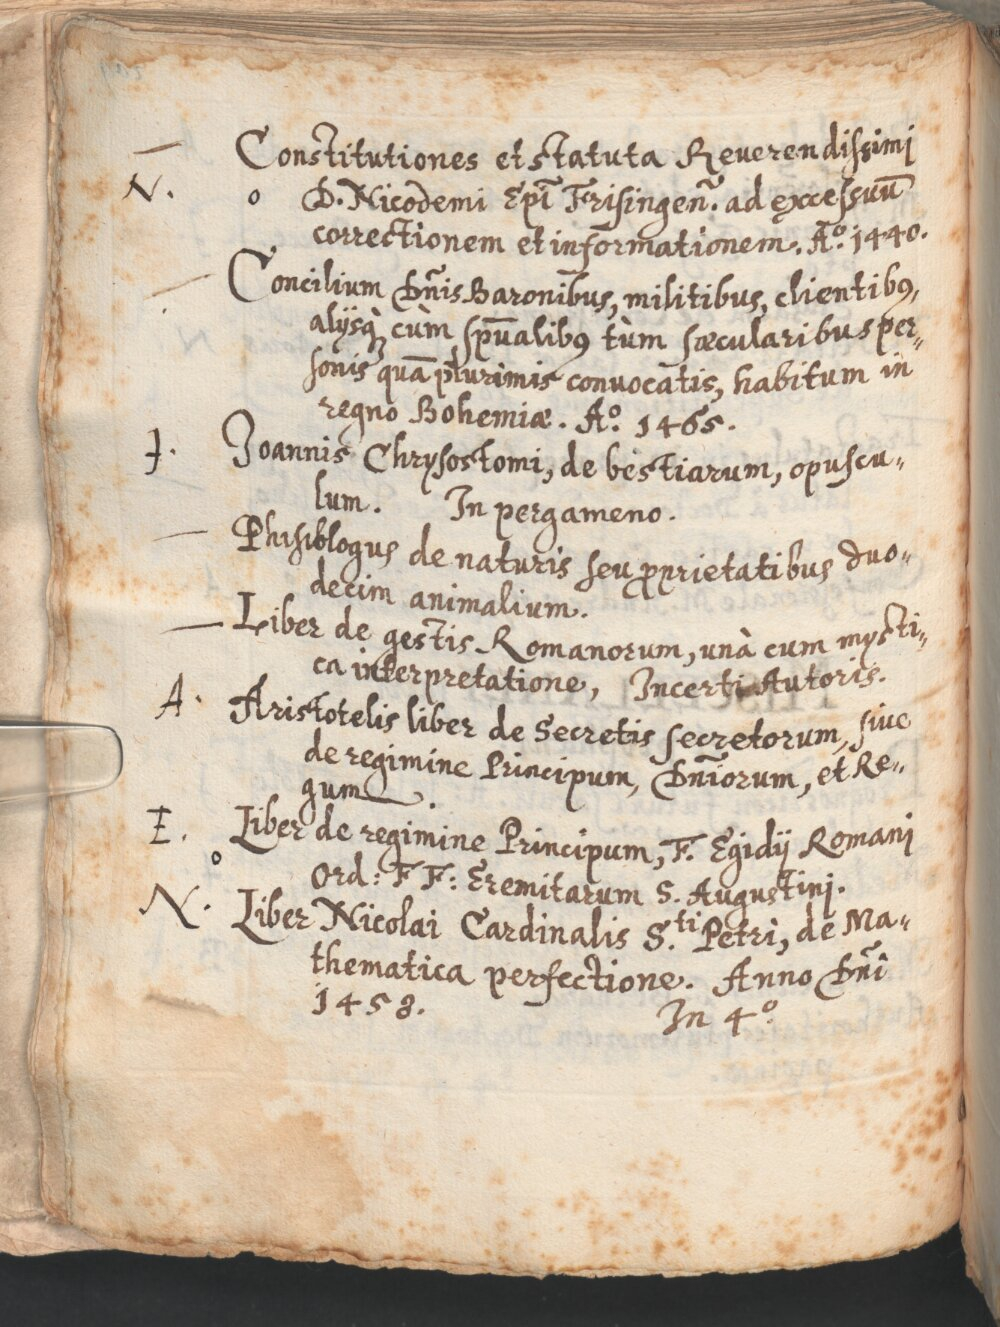 — Constitutiones et statuta Reuerendissimi
N. o D. Nicodemi Epĩ Frisingeñ. ad excessuũ
correctionem et informationem. Aº. 1440.
— Concilium Dñis Baronibus, militibus, clientibꝰ,
alijsq́ꝫ cùm spũalibꝰ tùm sæcularibus per„
sonis quã plurimis conuocatis, habitum in
regno Bohemiæ. Aº. 1465.
J. Joannis Chrysostomi, de bestiarum, opuscu„
lum. In pergameno.
— Phisiologus de naturis seu proprietatibus duo„
decim animalium.
— Liber de gestis Romanorum, unà cum mysti„
ca interpretatione, Incerti Autoris.
A. Aristotelis liber de Secretis secretorum, siue
de regimine Principum, Dñiorum, et Re„
gum.
E. Liber de regimine Principum, F. Egidij Romani
o Ord: FF: Eremitarum S. Augustini.
N. Liber Nicolai Cardinalis S.ti Petri, de Ma„
thematica perfectione. Anno Dñi
1458. In 4º